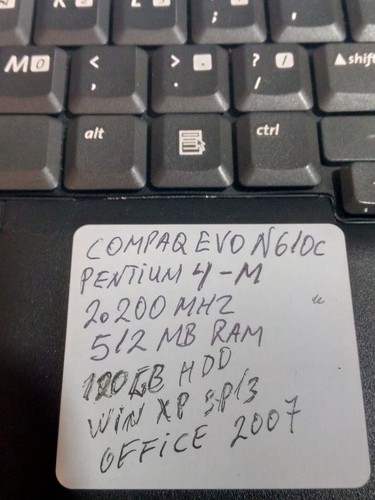 M 0
< ,
> .
? / /
shift
alt
ctrl
COMPAQ EVO N610C
PENTIUM 4-M
2.200 MHZ
512 MB RAM
GB HDD
WIN XP SP/3
OFFICE 2007